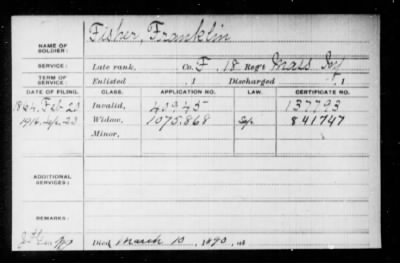 Fisher, Franklin
NAME OF SOLDIER:
SERVICE: Late rank, Co. F, 18 Reg't Mass Inf
TERM OF SERVICE: Enlisted , 1 Discharged , 1
DATE OF FILING. CLASS. APPLICATION NO. LAW. CERTIFICATE NO.
1864, Feb 23 Invalid, 43945 137793
1916, 23 Widow, 1075.868 841747
Minor,
ADDITIONAL SERVICES:
REMARKS:
Died March 10, 1890, at